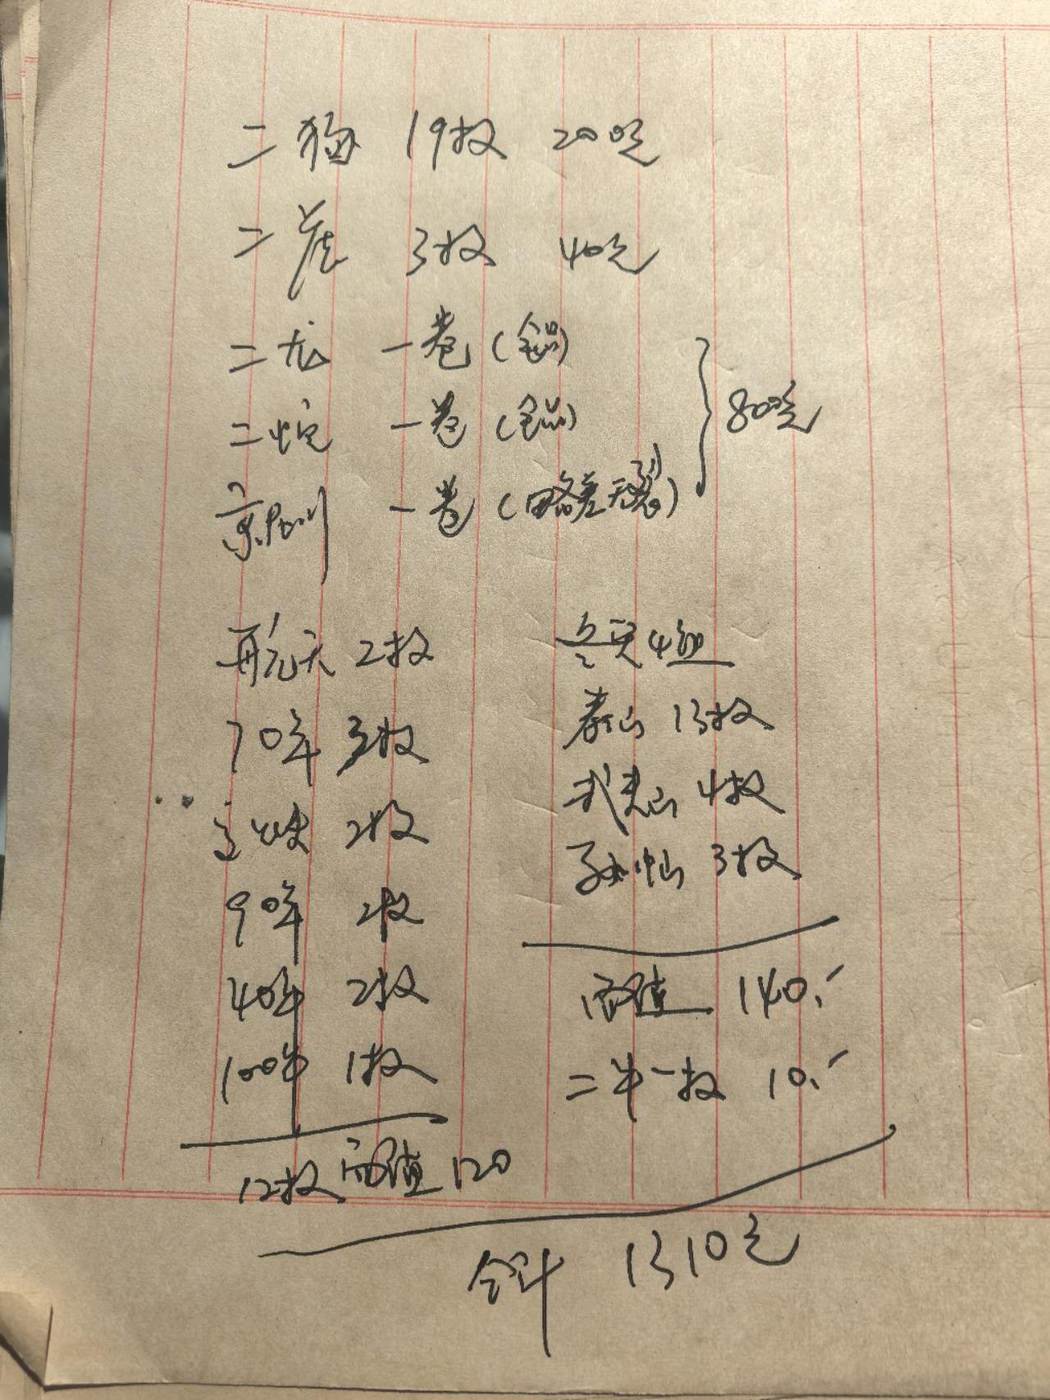 二狗 19枚 200元
二虎 3枚 40元
二龙 一卷(全品)
二蛇 一卷(全品)
京剧 一卷(略差无裂)
800元
再航天 2枚
70年 3枚
高铁 2枚
90年 2枚
40年 2枚
100年 1枚
12枚 面值 120
冬奥4组
泰山 13枚
武夷山 4枚
孙中山 3枚
面值 140.
二牛一枚 10.
合计 1310元